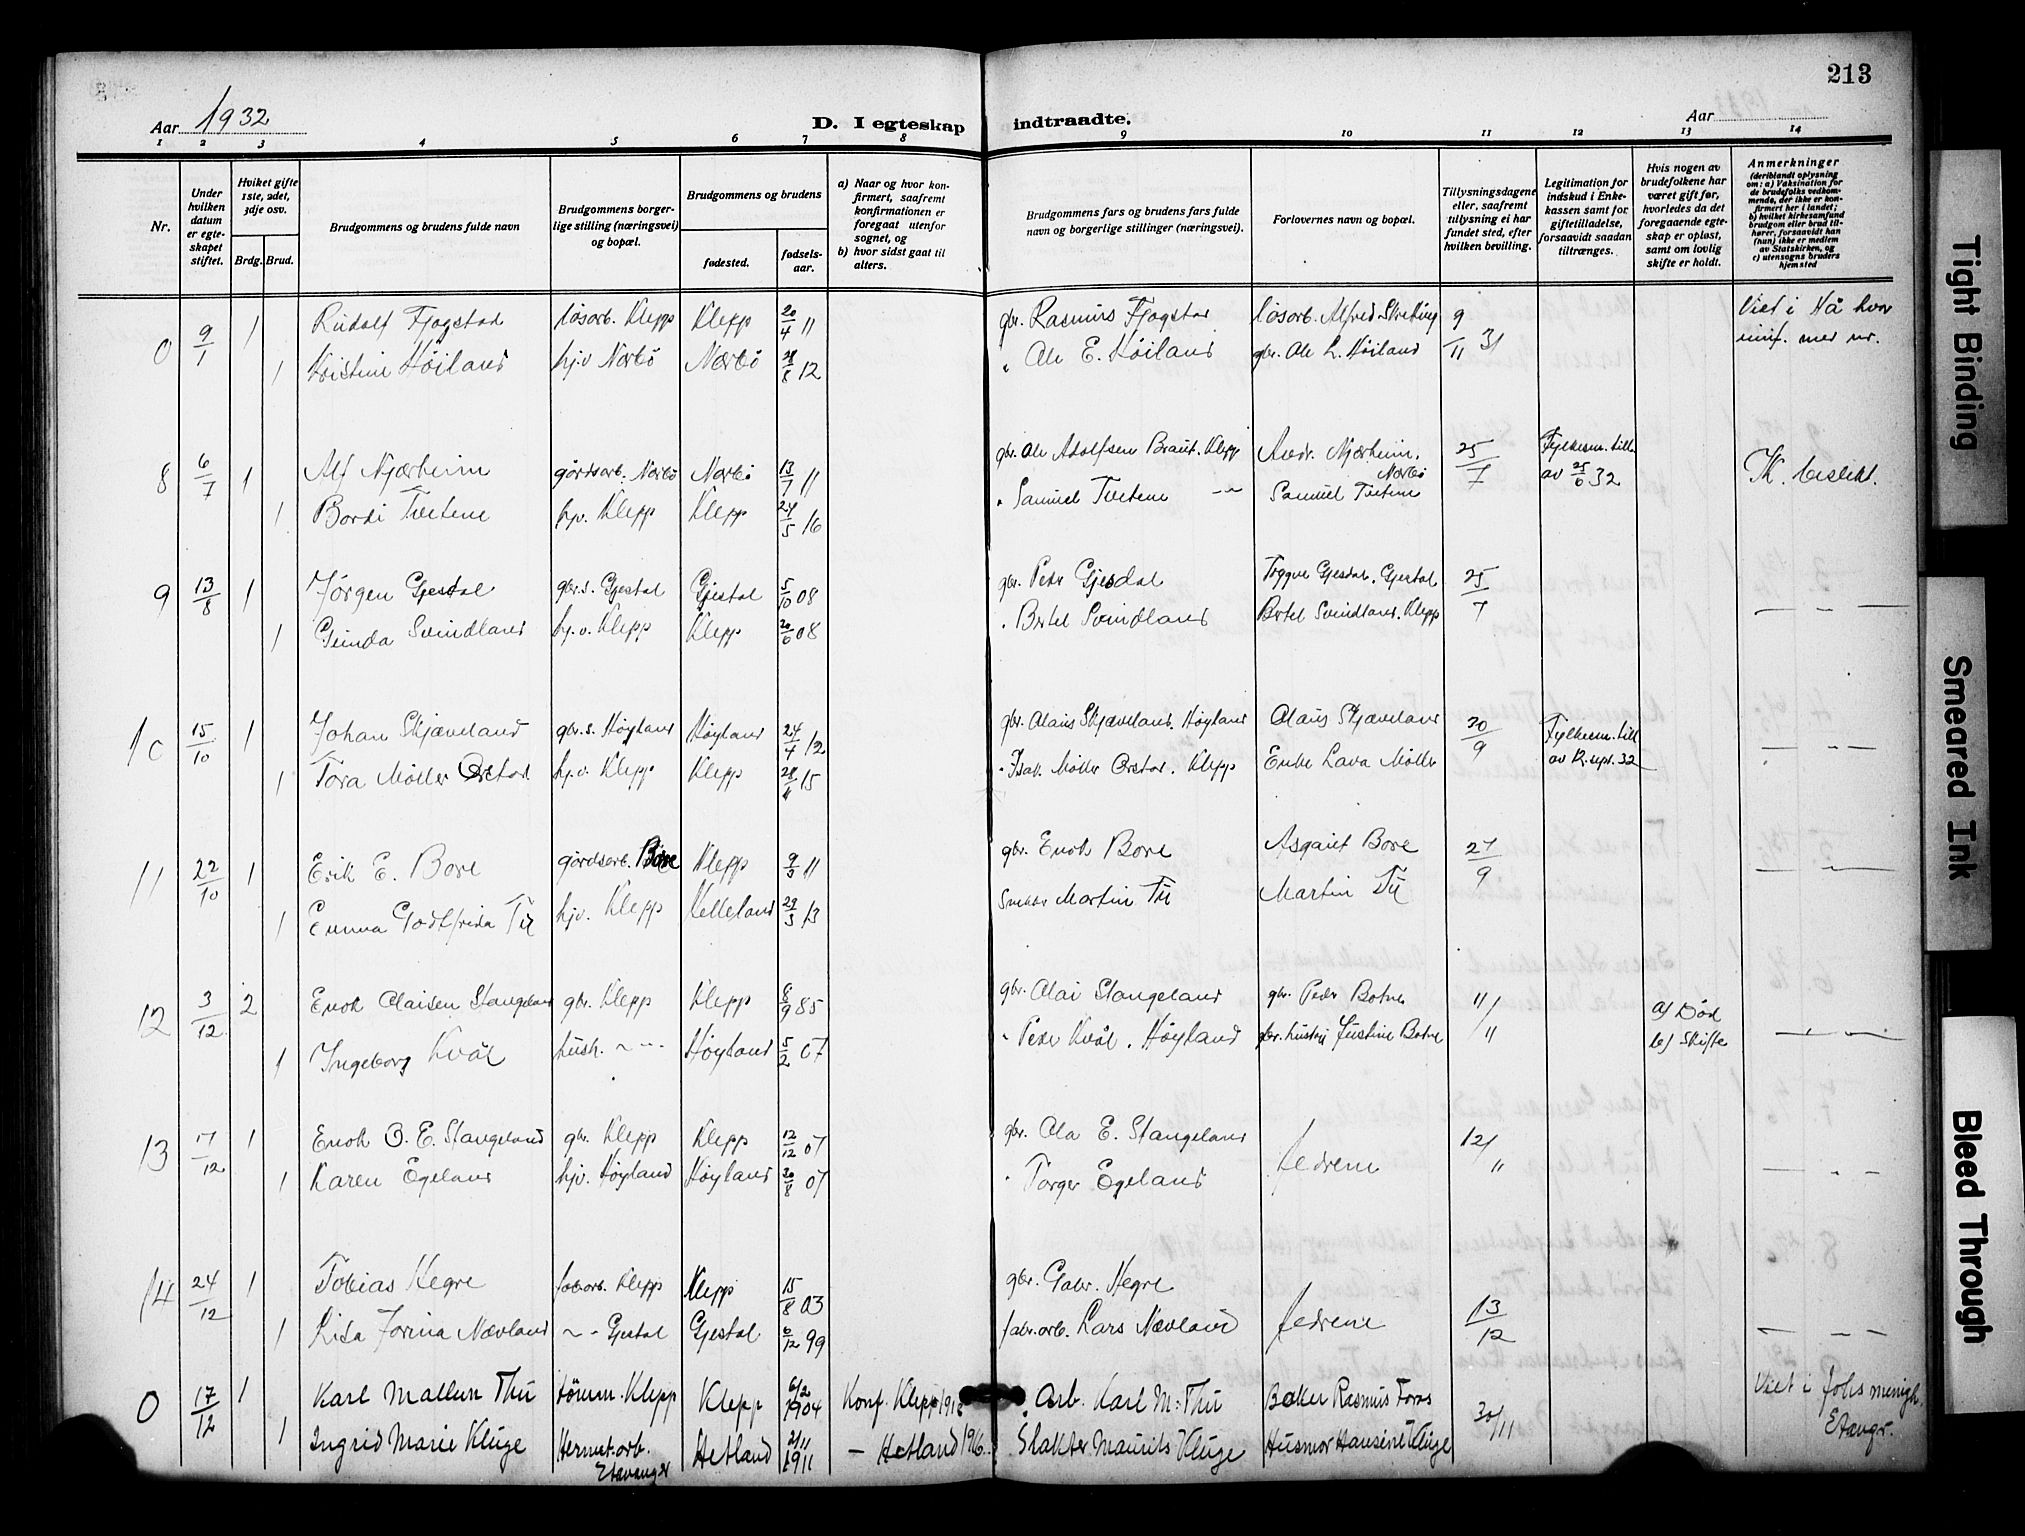 213
Aar 1932
D. I egteskap indtraadte.
Aar
1 2 3 4 5 6 7 8 9 10 11 12 13 14
Nr.
Under hvilken datum er egteskapet stiftet.
Hviket gifte 1ste, 2det, 3dje osv.
Brdg. Brud.
Brudgommens og brudens fulde navn
Brudgommens borgerlige stilling (næringsvei) og bopæl.
Brudgommens og brudens
fødested.
fødselsaar.
a) Naar og hvor konfirmert, saafremt konfirmationen er foregaat utenfor sognet, og
b) hvor sidst gaat til alters.
Brudgommens fars og brudens fars fulde navn og borgerlige stillinger (næringsvei).
Forlovernes navn og bopæl.
Tillysningsdagene eller, saafremt tillysning ei har fundet sted, efter hvilken bevilling.
Legitimation for indskud i Enkekassen samt for giftetilladelse, forsaavidt saadan tiltrænges.
Hvis nogen av brudefolkene har været gift før, hvorledes da det foregaaende egteskap er opløst, samt om lovlig skifte er holdt.
Anmerkninger (deriblandt oplysning om: a) Vaksination for de brudefolks vedkommende, der ikke er konfirmert her i landet; b) hvilket kirkesamfund brudgom eller brud tilhører, forsaavidt han (hun) ikke er medlem av Statskirken, og c) utensogns bruders hjemsted
0 9/1 1 Rudolf Fjogstad løsarb. Klepp Klepp 20/4 11 gbr. Rasmus Fjogstad løsarb. Alfred Skretting 9/11 31 Viet i Hå hvor
1 Kristine Høiland hjv Nærbø Nærbø 28/8 12 " Ole E. Høiland gbr. Ole L. Høiland innf. med nr.
8 6/7 1 Alf Njærheim gårdsarb. Nærbø Nærbø 13/7 11 gbr. Ole Adolfsen Braut. Klepp Andr. Njærheim. Nærbø 25/7 Fylkesm. till. av 25/6 32
1 Bordi Tvetene hjv. Klepp Klepp 24/5 16 " Samuel Tvetene Samuel Tvetene
9 13/8 1 Jørgen Gjesdal gbr.s. Gjestal Gjestal 5/10 08 gbr. Peder Gjesdal Trygve Gjesdal. Gjestal 25/7
1 Gunda Svindland hj.v. Klepp Klepp 20/6 08 " Bertel Svindland Bertel Svindland. Klepp
10 15/10 1 Johan Skjæveland gbr.s. Høyland Høyland 24/4 12 gbr. Olaus Skjæveland. Høyland Olaus Skjæveland 20/9 Fylkesm. till
1 Tora Møller Orstad hj.v. Klepp Klepp 28/11 15 " Isak Møller Orstad. Klepp Enke Lava Møller av 12. sept. 32
11 22/10 1 Erik E. Bore gårdsarb. Bore Klepp 9/3 11 gbr. Enok Bore Asgaut Bore 27/9
1 Emma Godtfrida Tu hjv. Klepp Kelleland 29/3 13 Snekker Martin Tu Martin Tu
12 3/12 2 Enok Olaisen Stangeland gbr. Klepp Klepp 8/9 85 gbr. Olai Stangeland gbr. Peder Botne 11/11 a) Død
1 Ingeborg Kvål hush. Høyland 5/2 07 " Peder Kvål. Høyland gbr. hustru Justine Botne b) Skifte
13 17/12 1 Enok O. E. Stangeland gbr. Klepp Klepp 12/12 07 gbr. Ola E. Stangeland fedrene 12/11
1 Karen Egeland hjv. Høyland Høyland 30/8 07 " Torger Egeland
14 24/12 1 Tobias Hegre fab.arb. Klepp Klepp 15/8 03 gbr. Gabr. Hegre fedrene 13/12
1 Lisa Jorina Nævland Gjestal Gjestal 6/12 99 fabr.arb. Lars Nævland
0 17/12 1 Karl Mallun Thu tømm. Klepp Klepp 6/2 1904 Konf. Klepp Arb. Karl M. Thu Baker Rasmus Foros 30/11 Viet i Johs menigh.
1 Ingrid Marie Kluge Hermet.arb. Stavanger Hetland 2/11 1911 – Hetland Slakter Maurits Kluge Husmor Hansine Kluge Stavgr.
Tight Binding
Smeared Ink
Bleed Through